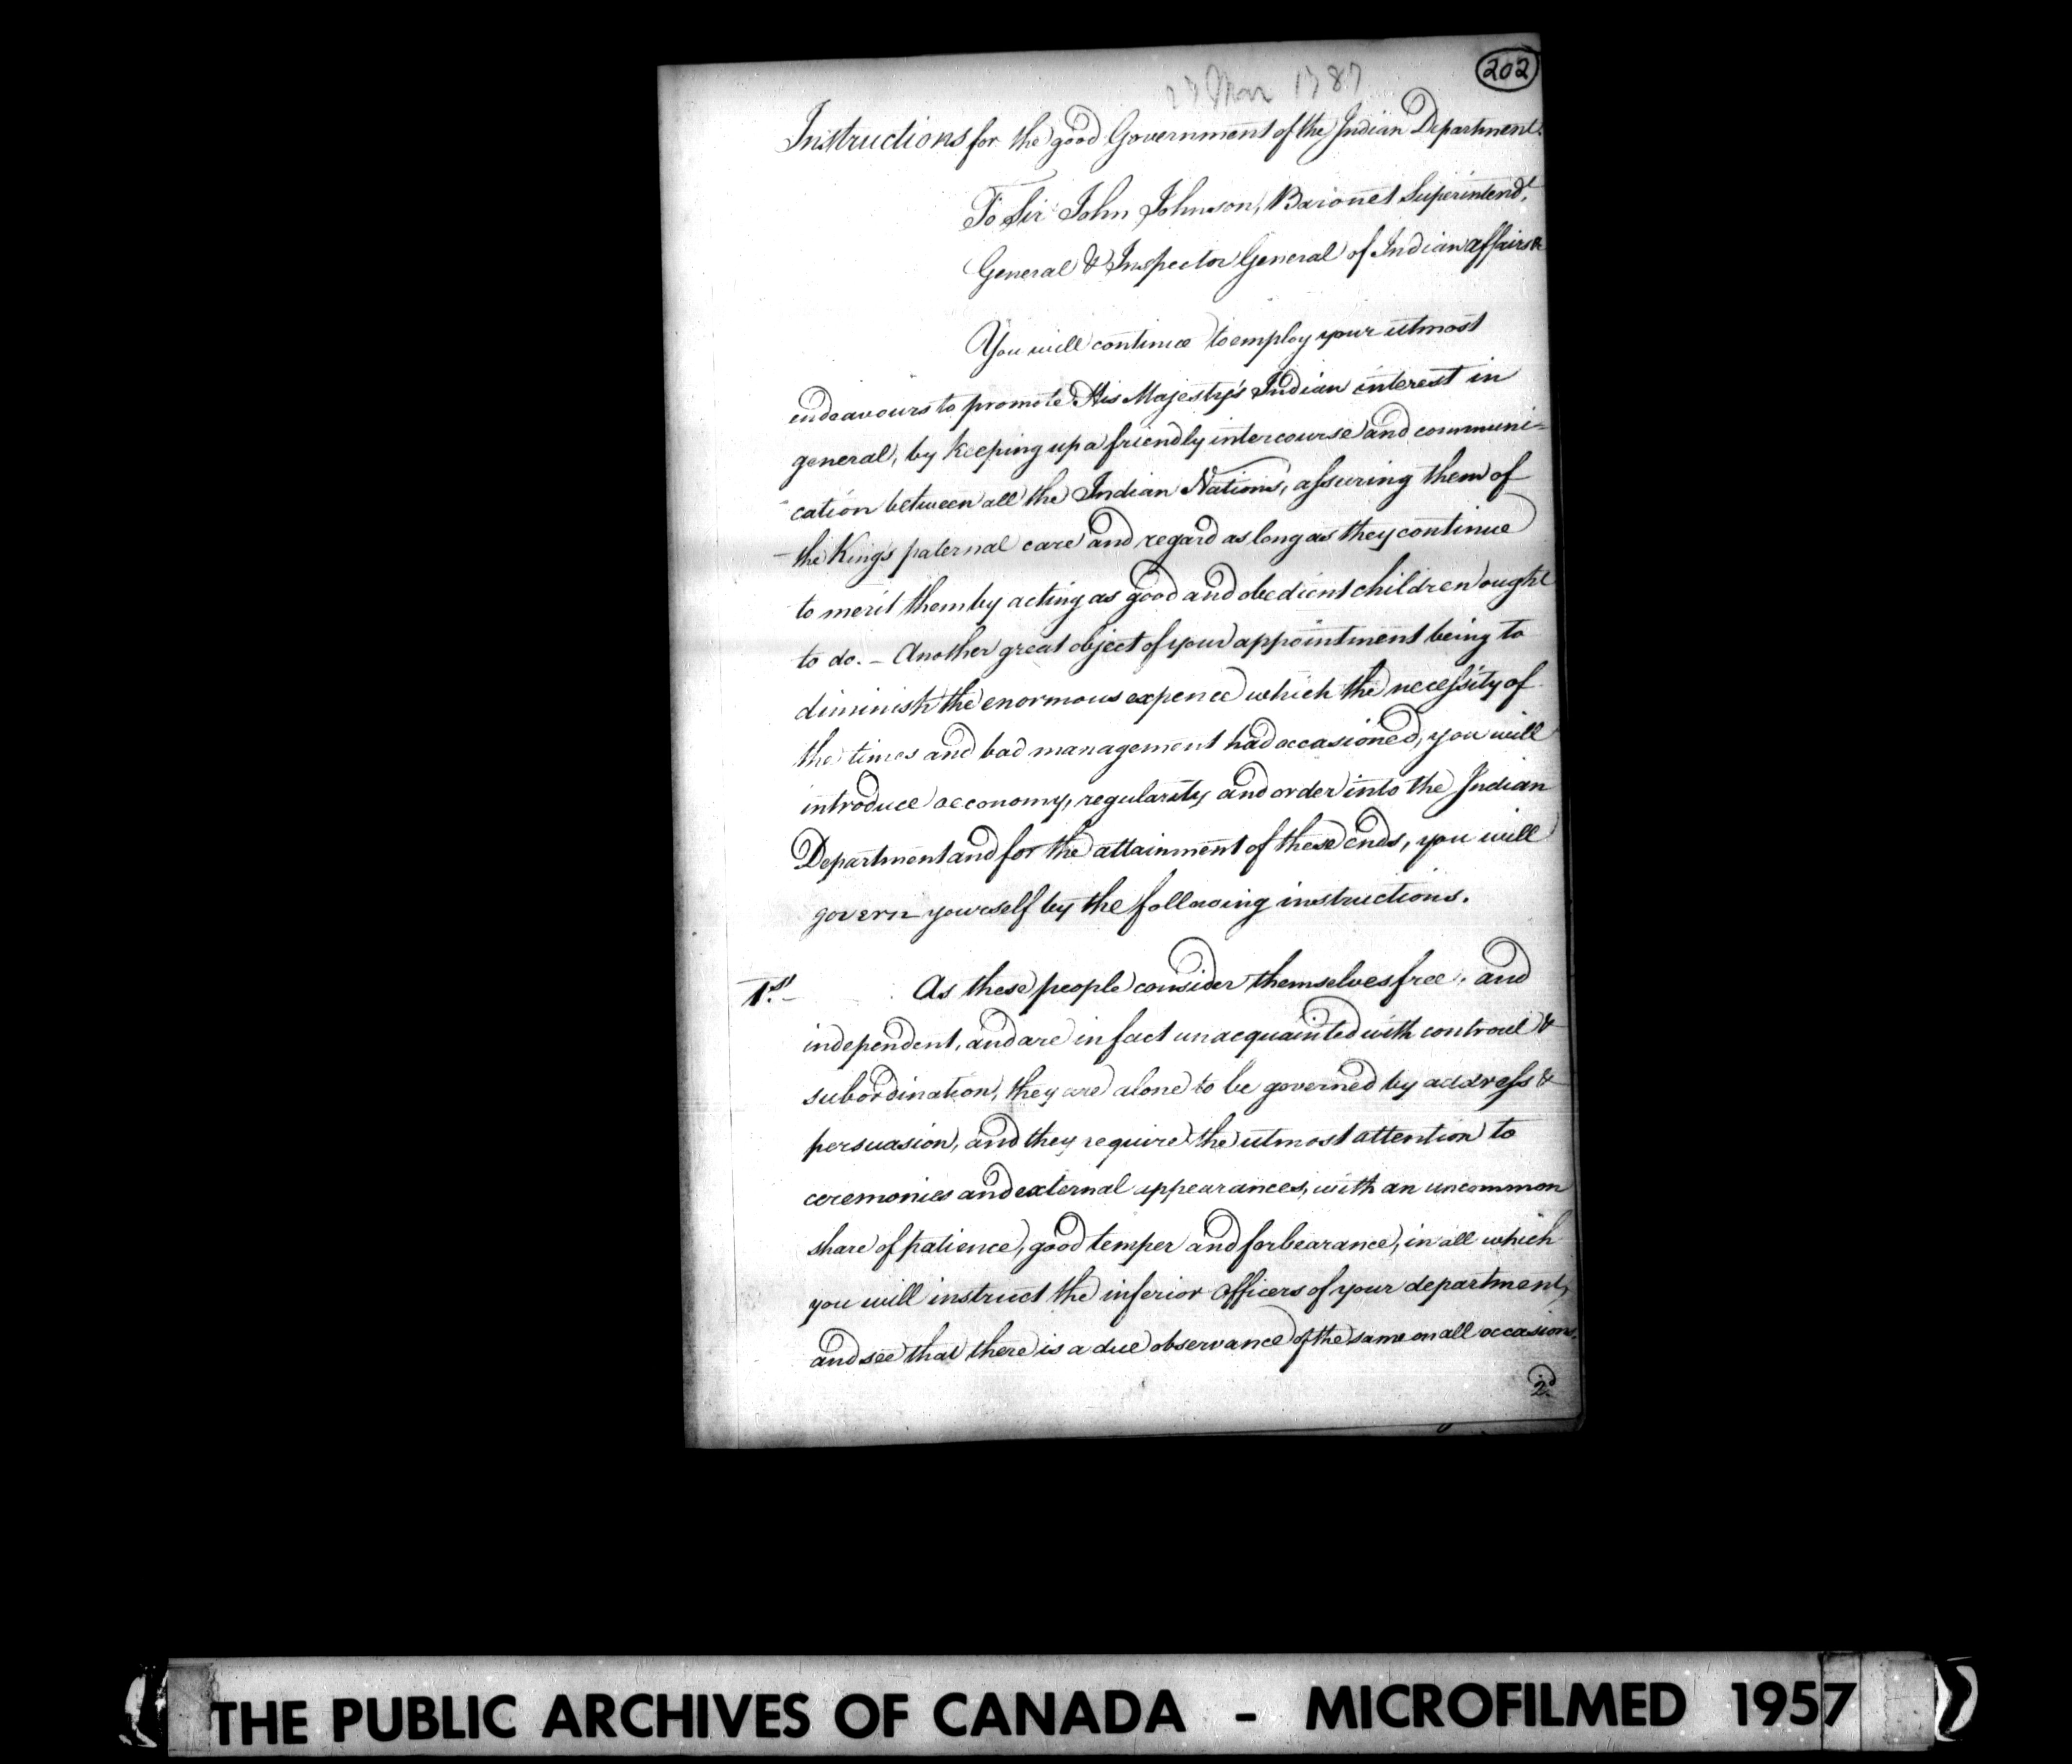 202
27 Mar 1787
Instructions for the good Government of the Indian Department.
To Sir John Johnson, Baronet Superintendt.
General & Inspector General of Indian affairs &
You will continue to employ your utmost
endeavours to promote His Majesty's Indian interest in
general, by keeping up a friendly intercourse and communi=
cation between all the Indian Nations, assuring them of
the King's paternal care and regard as long as they continue
to merit them by acting as good and obedient children ought
to do. – Another great object of your appointment being to
diminish the enormous expence which the necessity of
the times and bad management had occasioned, you will
introduce oeconomy, regularity and order into the Indian
Department and for the attainment of these ends, you will
govern yourself by the following instructions.
1st. – As these people consider themselves free, and
independent, and are in fact unacquainted with controul &
subordination, they are alone to be governed by address &
persuasion, and they require the utmost attention to
ceremonies and external appearances, with an uncommon
share of patience, good temper and forbearance, in all which
you will instruct the inferior officers of your department,
and see that there is a due observance of the same on all occasions.
2d
THE PUBLIC ARCHIVES OF CANADA - MICROFILMED 1957